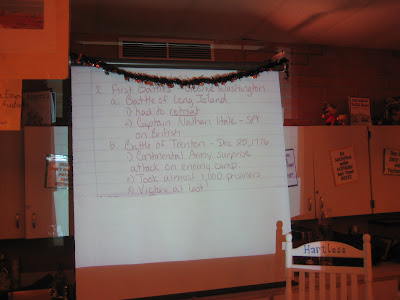 I. First Battles George Washington
a. Battle of Long Island
1) had to retreat
2) Captain Nathan Hale - SPY
on British
b. Battle of Trenton - Dec 25, 1776
1) Continental Army surprise
attack on enemy camp
2) Took almost 1,000 prisoners
3) Victory at last!
Hartless